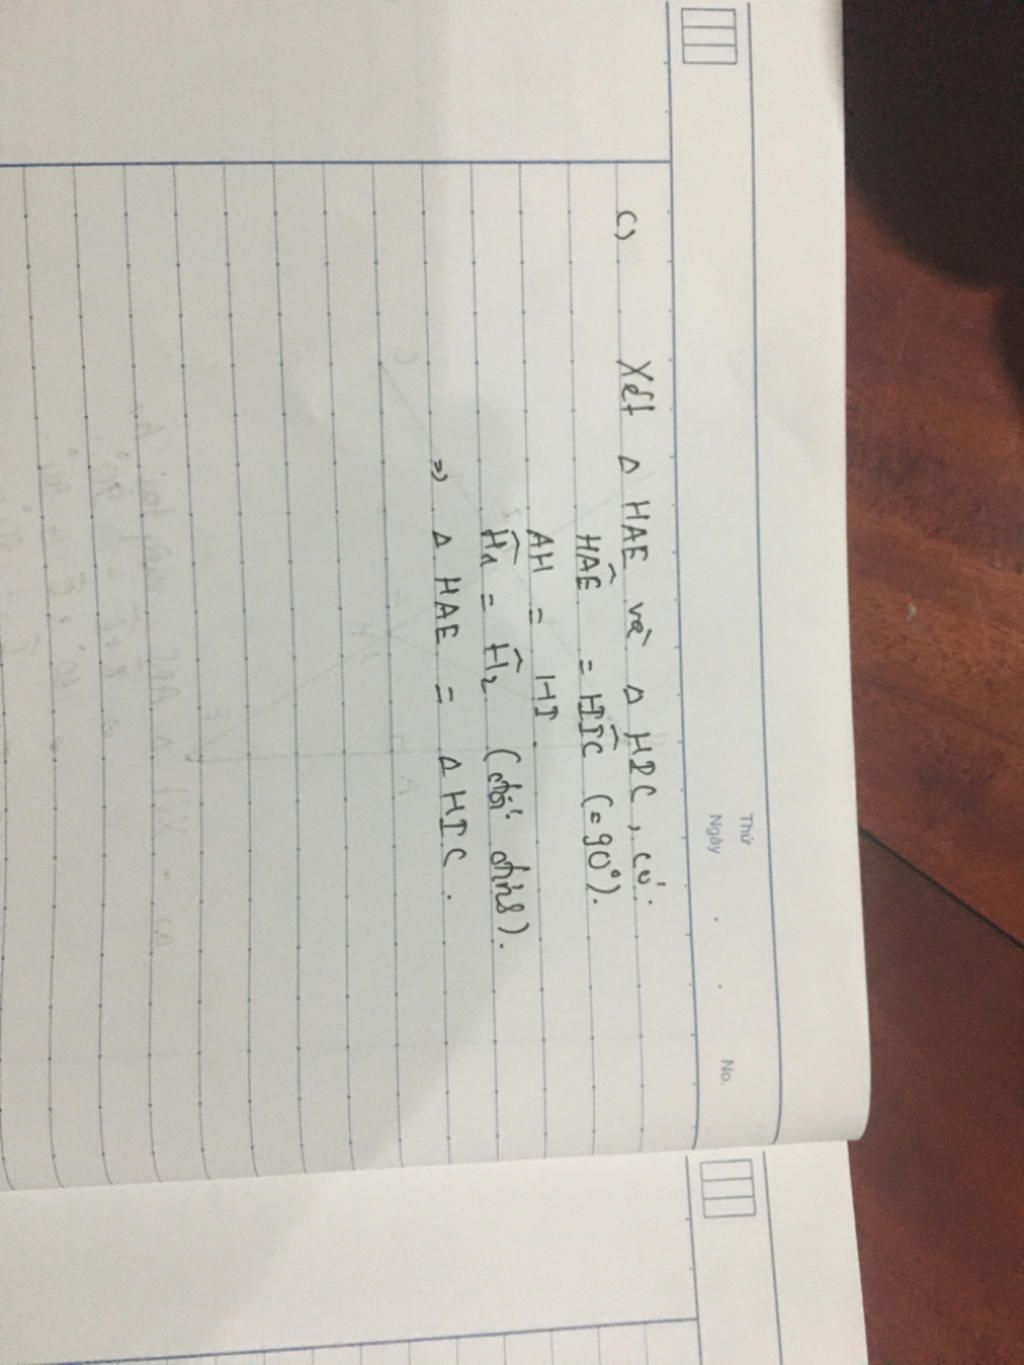 Thứ
Ngày . . No.
c) Xét Δ HAE và Δ HIC, có:
HAE^ = HIC^ (=90°).
AH = HI
H1^ = H2^ (đối đỉnh).
=> Δ HAE = Δ HIC.